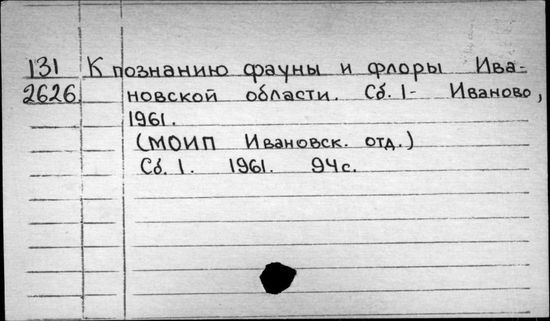 131 К познанию фауны и флоры Ива-
2626. новской области. Сб. 1- Иваново,
1961.
(МОИП Ивановск. отд.)
Сб. 1. 1961. 94с.